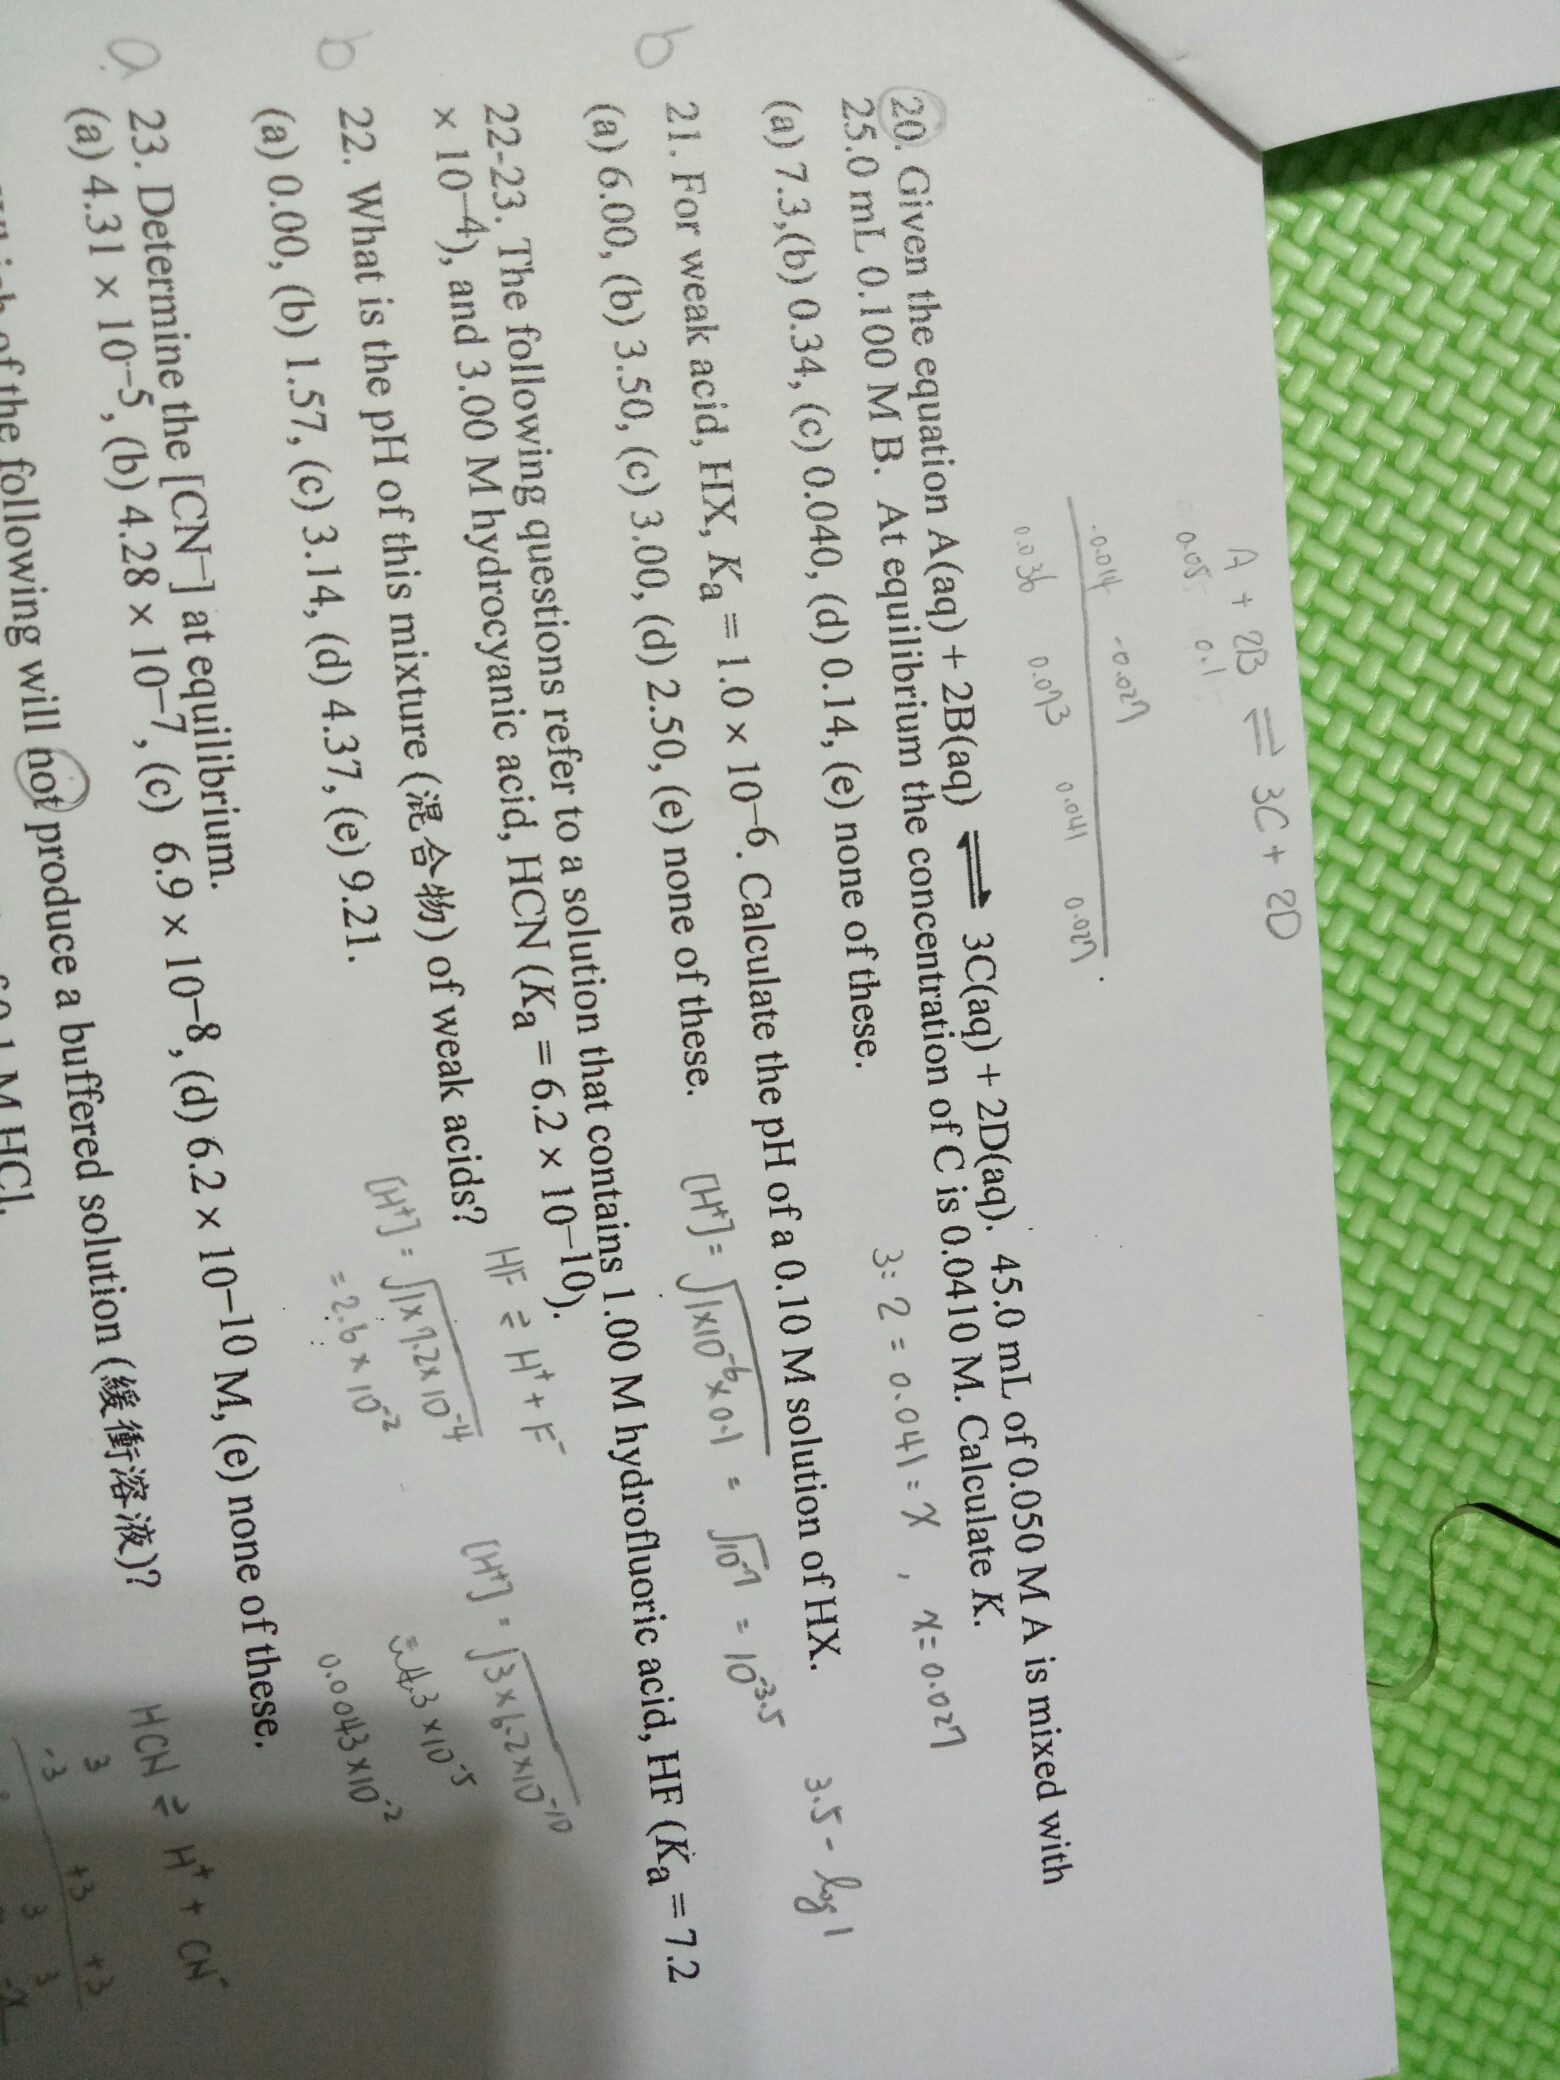 A + 2B ⇌ 3C + 2D
0.05 0.1
-0.014 -0.027
0.036 0.073 0.041 0.027
20. Given the equation A(aq) + 2B(aq) ⇌ 3C(aq) + 2D(aq). 45.0 mL of 0.050 M A is mixed with
25.0 mL 0.100 M B. At equilibrium the concentration of C is 0.0410 M. Calculate K.
3:2 = 0.041=x, x=0.027
(a) 7.3,(b) 0.34, (c) 0.040, (d) 0.14, (e) none of these.
b 21. For weak acid, HX, Ka = 1.0 × 10–6. Calculate the pH of a 0.10 M solution of HX.
3.5 - log 1
(a) 6.00, (b) 3.50, (c) 3.00, (d) 2.50, (e) none of these.
[H+] = √1×10-6×0.1 = √10-7 = 10-3.5
22-23. The following questions refer to a solution that contains 1.00 M hydrofluoric acid, HF (Ka = 7.2
× 10–4), and 3.00 M hydrocyanic acid, HCN (Ka = 6.2 × 10–10).
HF ⇌ H+ + F-
[H+] = √3×6.2×10-10
b 22. What is the pH of this mixture (混合物) of weak acids?
[H+] = √1×7.2×10-4
= 4.3 ×10-5
= 2.6 × 10-2
0.0043×10-2
(a) 0.00, (b) 1.57, (c) 3.14, (d) 4.37, (e) 9.21.
a 23. Determine the [CN–] at equilibrium.
(a) 4.31 × 10–5, (b) 4.28 × 10–7, (c) 6.9 × 10–8, (d) 6.2 × 10–10 M, (e) none of these.
HCN ⇌ H+ + CN-
3
-3 +3 +3
3 3
of the following will not produce a buffered solution (緩衝溶液)?
1 M HCl.